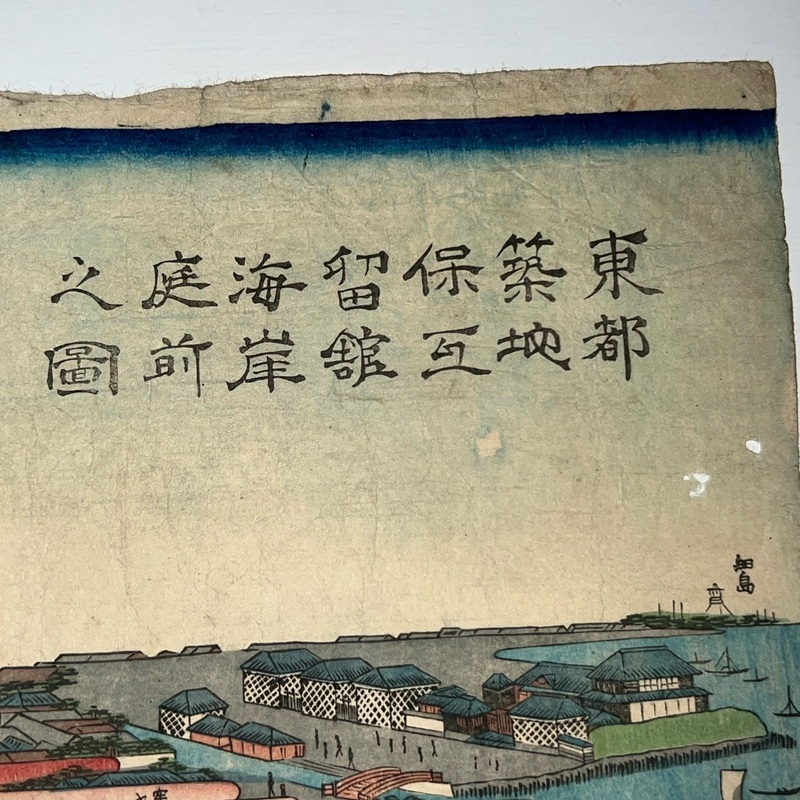 東都
築地
保互
留舘
海岸
庭前
之圖
佃島